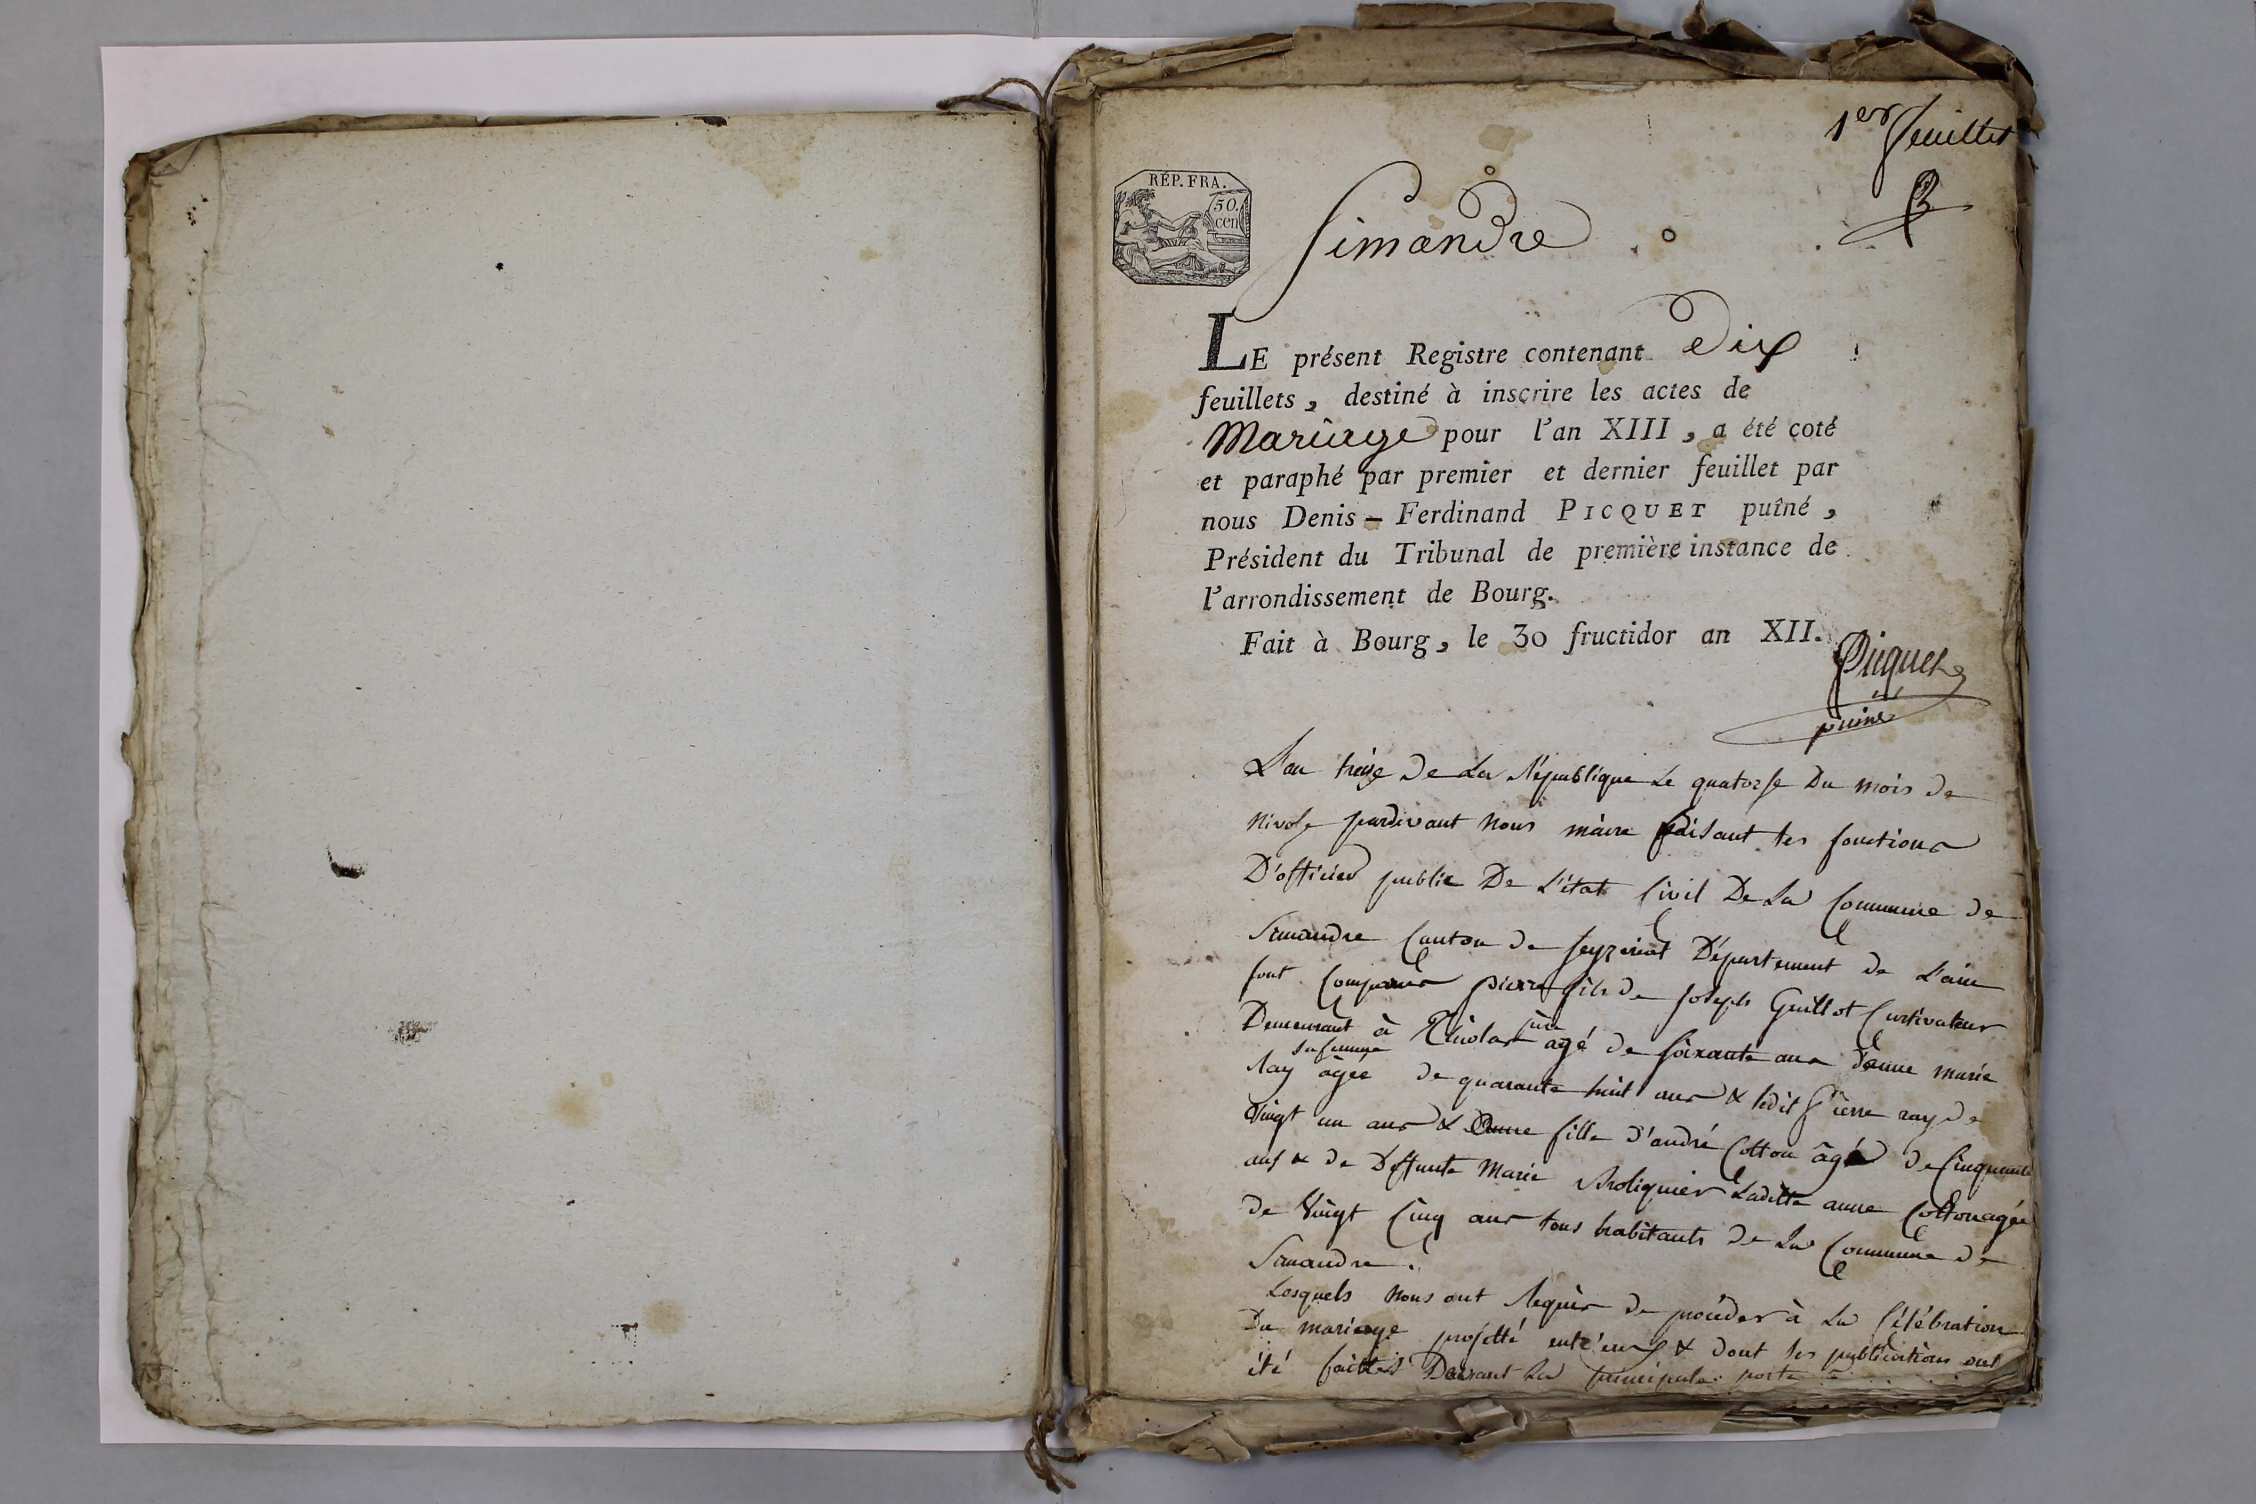 1er feuillet
RÉP. FRA.
50.
cen
Simandre
LE présent Registre contenant Dix
feuillets, destiné à inscrire les actes de
Mariage pour l'an XIII, a été coté
et paraphé par premier et dernier feuillet par
nous Denis-Ferdinand PICQUET puîné,
Président du Tribunal de première instance de
l'arrondissement de Bourg.
Fait à Bourg, le 30 fructidor an XII.
Picquet
puiné
L'an treize de La République Le quatorse Du mois de
Nivose pardevant Nous maire faisant les fonctions
D'officier public De L'état Civil De La Commune de
Simandre Canton de Seyzeriat Département de L'ain
sont Comparus pierre fils de Joseph Guillot Cultivateur
Demeurant à agé de soixante ans Danne marie
Ray sa femme âgée de quarante huit ans & ledit Pierre ray de
Vingt un ans & Anne fille d'andré Cotton âgé de Cinquante
ans & de Deffunte Marie Ladite anne Cotton agée
de Vingt Cinq ans tous habitants de La Commune de
Simandre.
Lesquels Nous ont Requis de procéder à La Célébration
Du mariage projetté entr'eux & dont les publications ont
été faittes Devant La principale porte